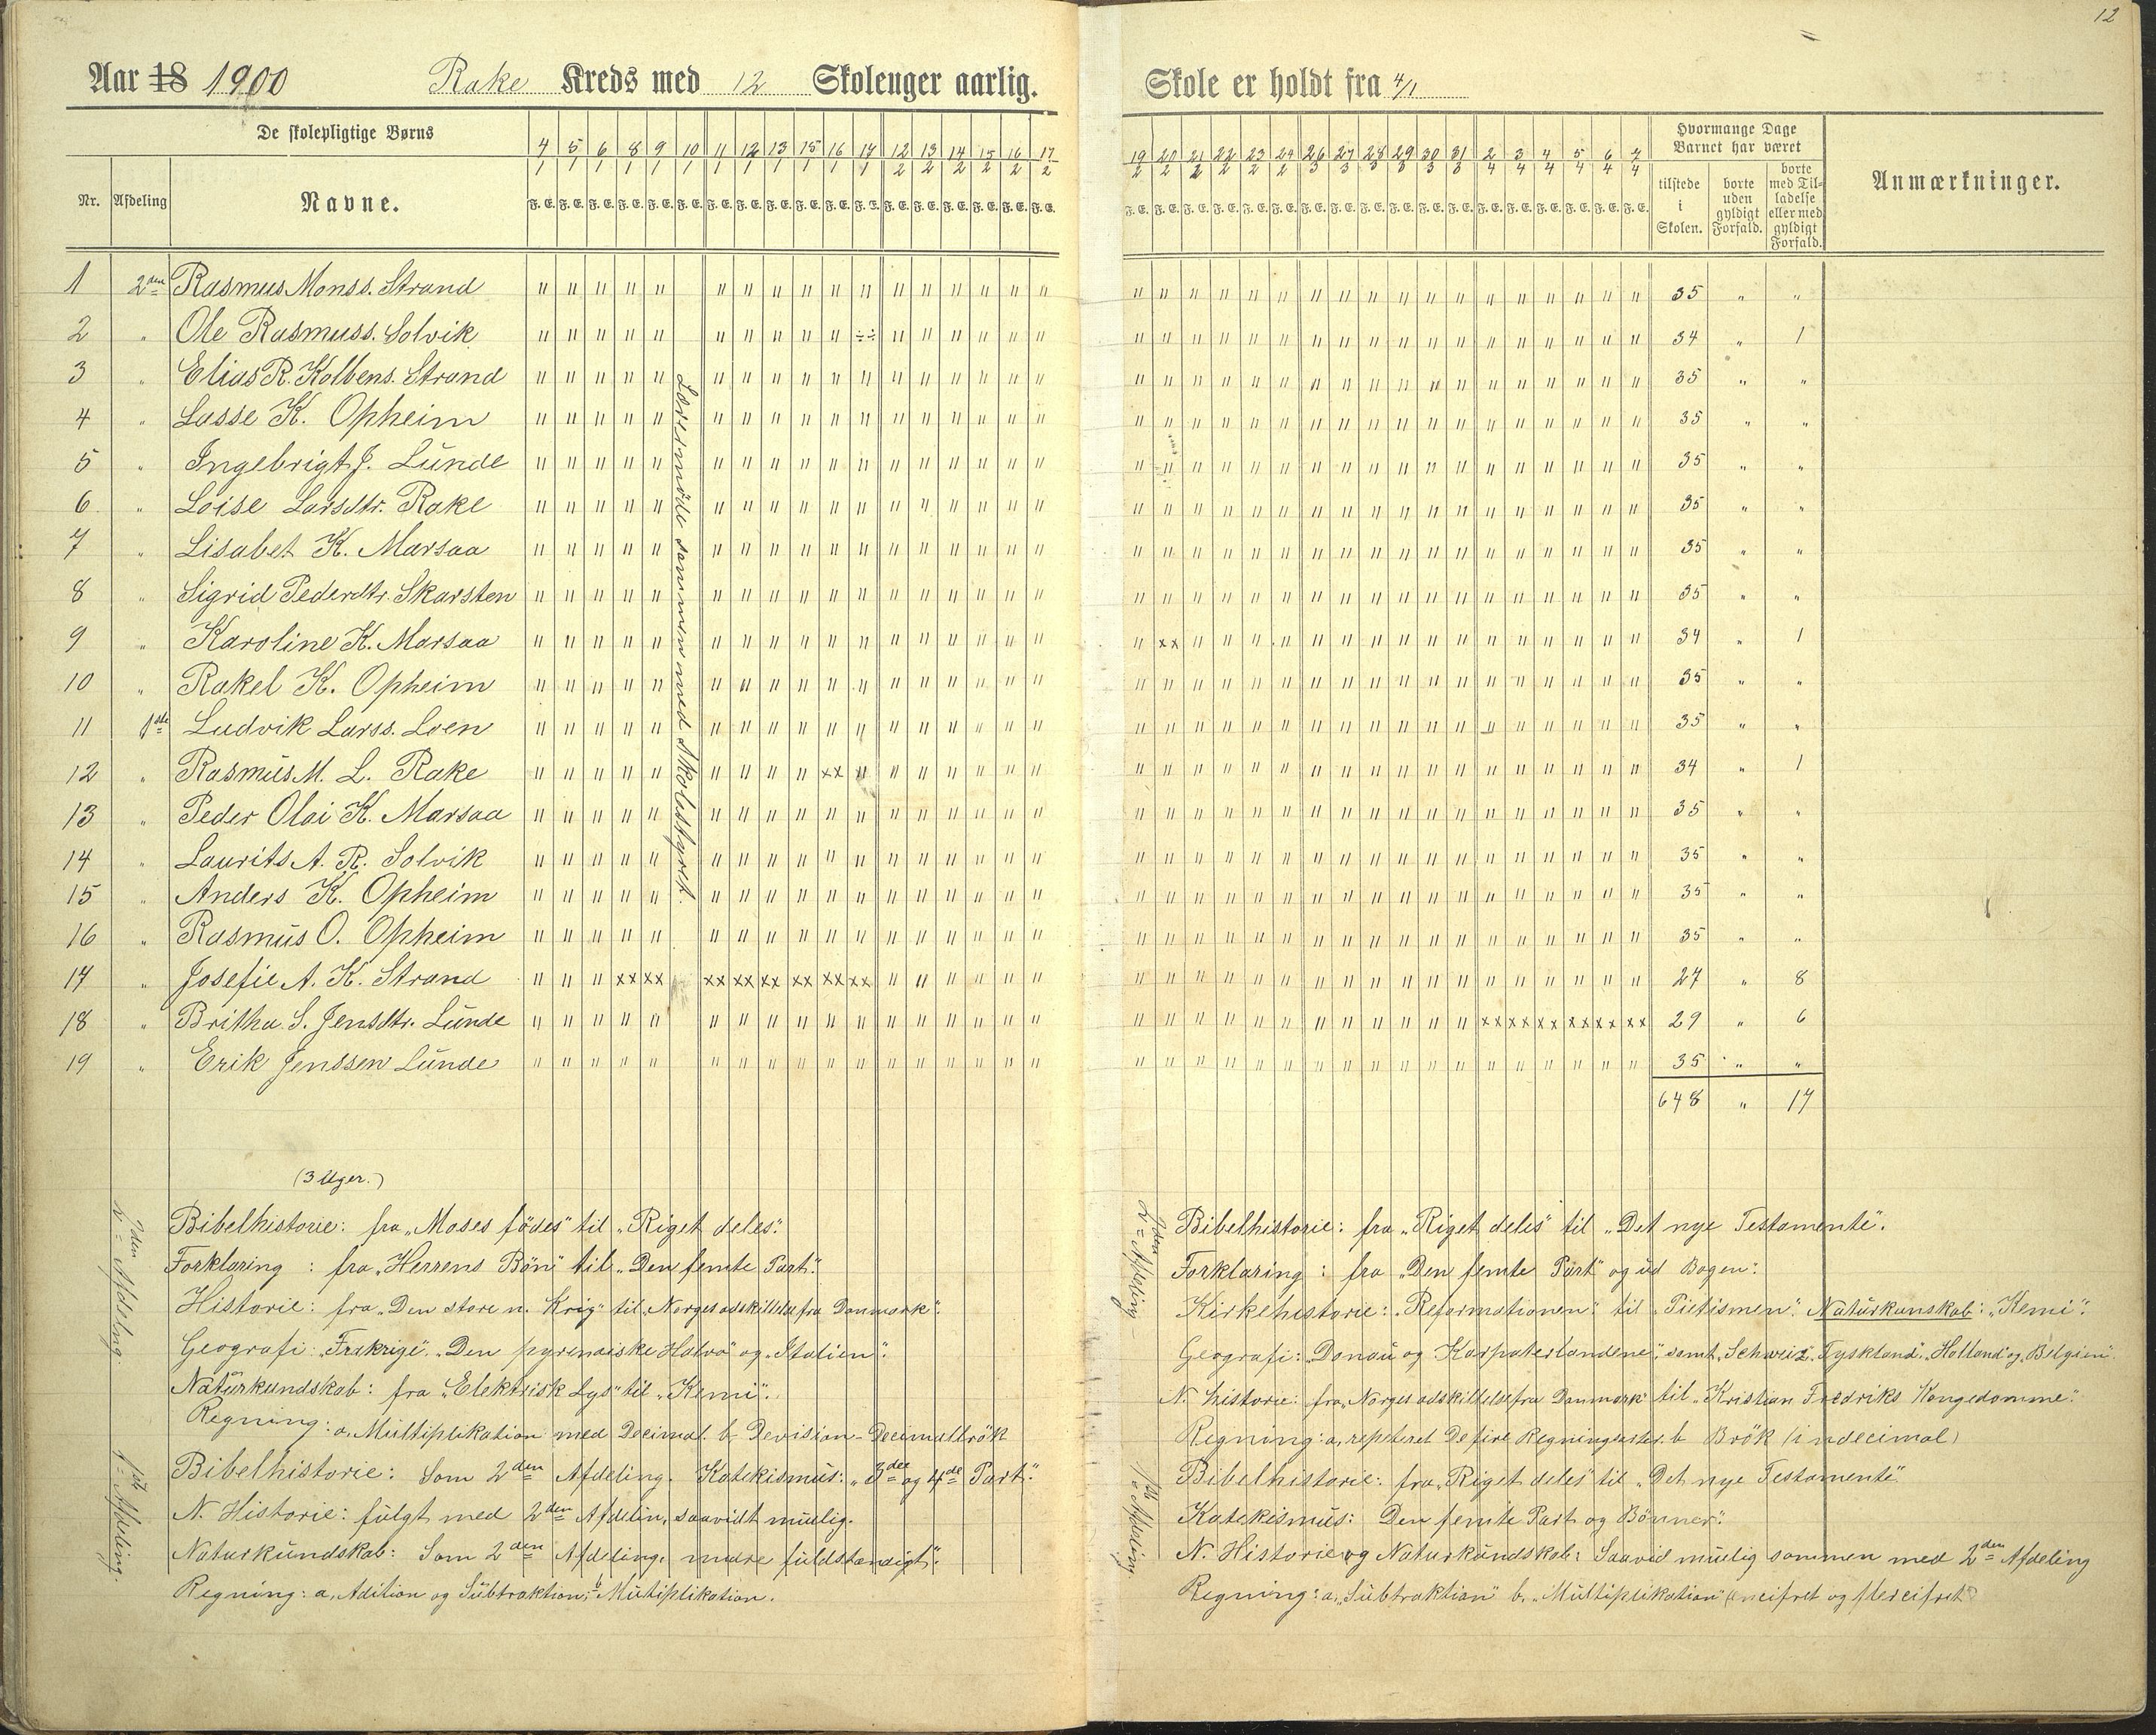 12
Aar 18 1900 Rake Kreds med 12 Skolenger aarlig. Skole er holdt fra 4/1
De skolepligtige Børns
Hvormange Dage Barnet har været
Nr. Afdeling Navne.
4/1 5/1 6/1 8/1 9/1 10/1 11/1 12/1 13/1 15/1 16/1 17/1 12/2 13/2 14/2 15/2 16/2 17/2
19/2 20/2 21/2 22/2 23/2 24/2 26/3 27/3 28/3 29/3 30/3 31/3 2/4 3/4 4/4 5/4 6/4 7/4
F. E. F. E. F. E. F. E. F. E. F. E. F. E. F. E. F. E. F. E. F. E. F. E. F. E. F. E. F. E. F. E. F. E. F. E.
F. E. F. E. F. E. F. E. F. E. F. E. F. E. F. E. F. E. F. E. F. E. F. E. F. E. F. E. F. E. F. E. F. E. F. E.
tilstede i Skolen.
borte uden gyldigt Forfald.
borte med Tilladelse eller med gyldigt Forfald.
Anmærkninger.
1 2den Rasmus Monss. Strand 35 " "
2 " Ole Rasmuss. Solvik 34 " 1
3 " Elias R. Kolbens. Strand 35 " "
4 " Lasse K. Opheim 35 " "
5 " Ingebrigt J. Lunde 35 " "
6 " Loise Larsdtr. Rake 35 " "
7 " Lisabet K. Marsaa 35 " "
8 " Sigrid Pederdtr. Skarsten 35 " "
9 " Karoline K. Marsaa xx 34 " 1
10 " Rakel K. Opheim 35 " "
11 1ste Ludvik Larss. Loen 35 " "
12 " Rasmus M. L. Rake xx 34 " 1
13 " Peder Olai K. Marsaa 35 " "
14 " Laurits A. R. Solvik 35 " "
15 " Anders K. Opheim 35 " "
16 " Rasmus O. Opheim 35 " "
17 " Josefie A. K. Strand xx xx xx xx xx xx xx xx 27 " 8
18 " Britha S. Jensdtr. Lunde xx xx xx xx xx xx 29 " 6
19 " Erik Jenssen Lunde 35 " "
648 " 17
Lærermöde sammen med Skolestyret.
(3 Uger.)
2den Afdeling.
Bibelhistorie: fra "Moses födes" til "Riget deles".
Forklaring : fra "Herrens Bön" til "Den femte Part".
Historie: fra "Den store n. Krig" til "Norges adskillelse fra Danmark".
Geografi: "Frakrige". "Den pyrenæiske Halvö" og "Italien".
Naturkundskab: fra "Elektrisk Lys" til "Kemi".
Regning: a, Multiplikation med Decimal. b, Devision - Decimalbrök
1ste Afdeling.
Bibelhistorie: Som 2den Afdeling. Katekismus: "3die og 4de Part."
N. Historie: fulgt med 2den Afdelin, saavidt muulig.
Naturkundskab: Som 2den Afdeling. mdre fuldstændigt".
Regning: a, Adition og Subtraktion; b Mutiplikation.
2den Afdeling
Bibelhistorie: fra "Riget deles" til "Det nye Testamente".
Forklaring: fra "Den femte Part" og ud Bogen".
Kirkehistorie: "Reformationen" til "Pietismen". Naturkunskab: "Kemi".
Geografi: "Donau og Karpaterlandene", samt "Schweiz". "Tyskland". "Holland" og "Belgien".
N. historie: fra "Norges adskillelse fra Danmark" til "Kristian Fredriks Kongedomme".
Regning: a, repeteret De fire Regningsarter. b Brök (i ndecimal)
1ste Afdeling.
Bibelhistorie: fra "Riget deles" til "Det nye Testamente"
Katekismus: Den femte Part og Bönner".
N. Historie og Naturkundskab: Saavid muulig sammen med 2den Afdeling
Regning: a, "Subtraktion" b, "Multiplikation" (encifret og flercifret)